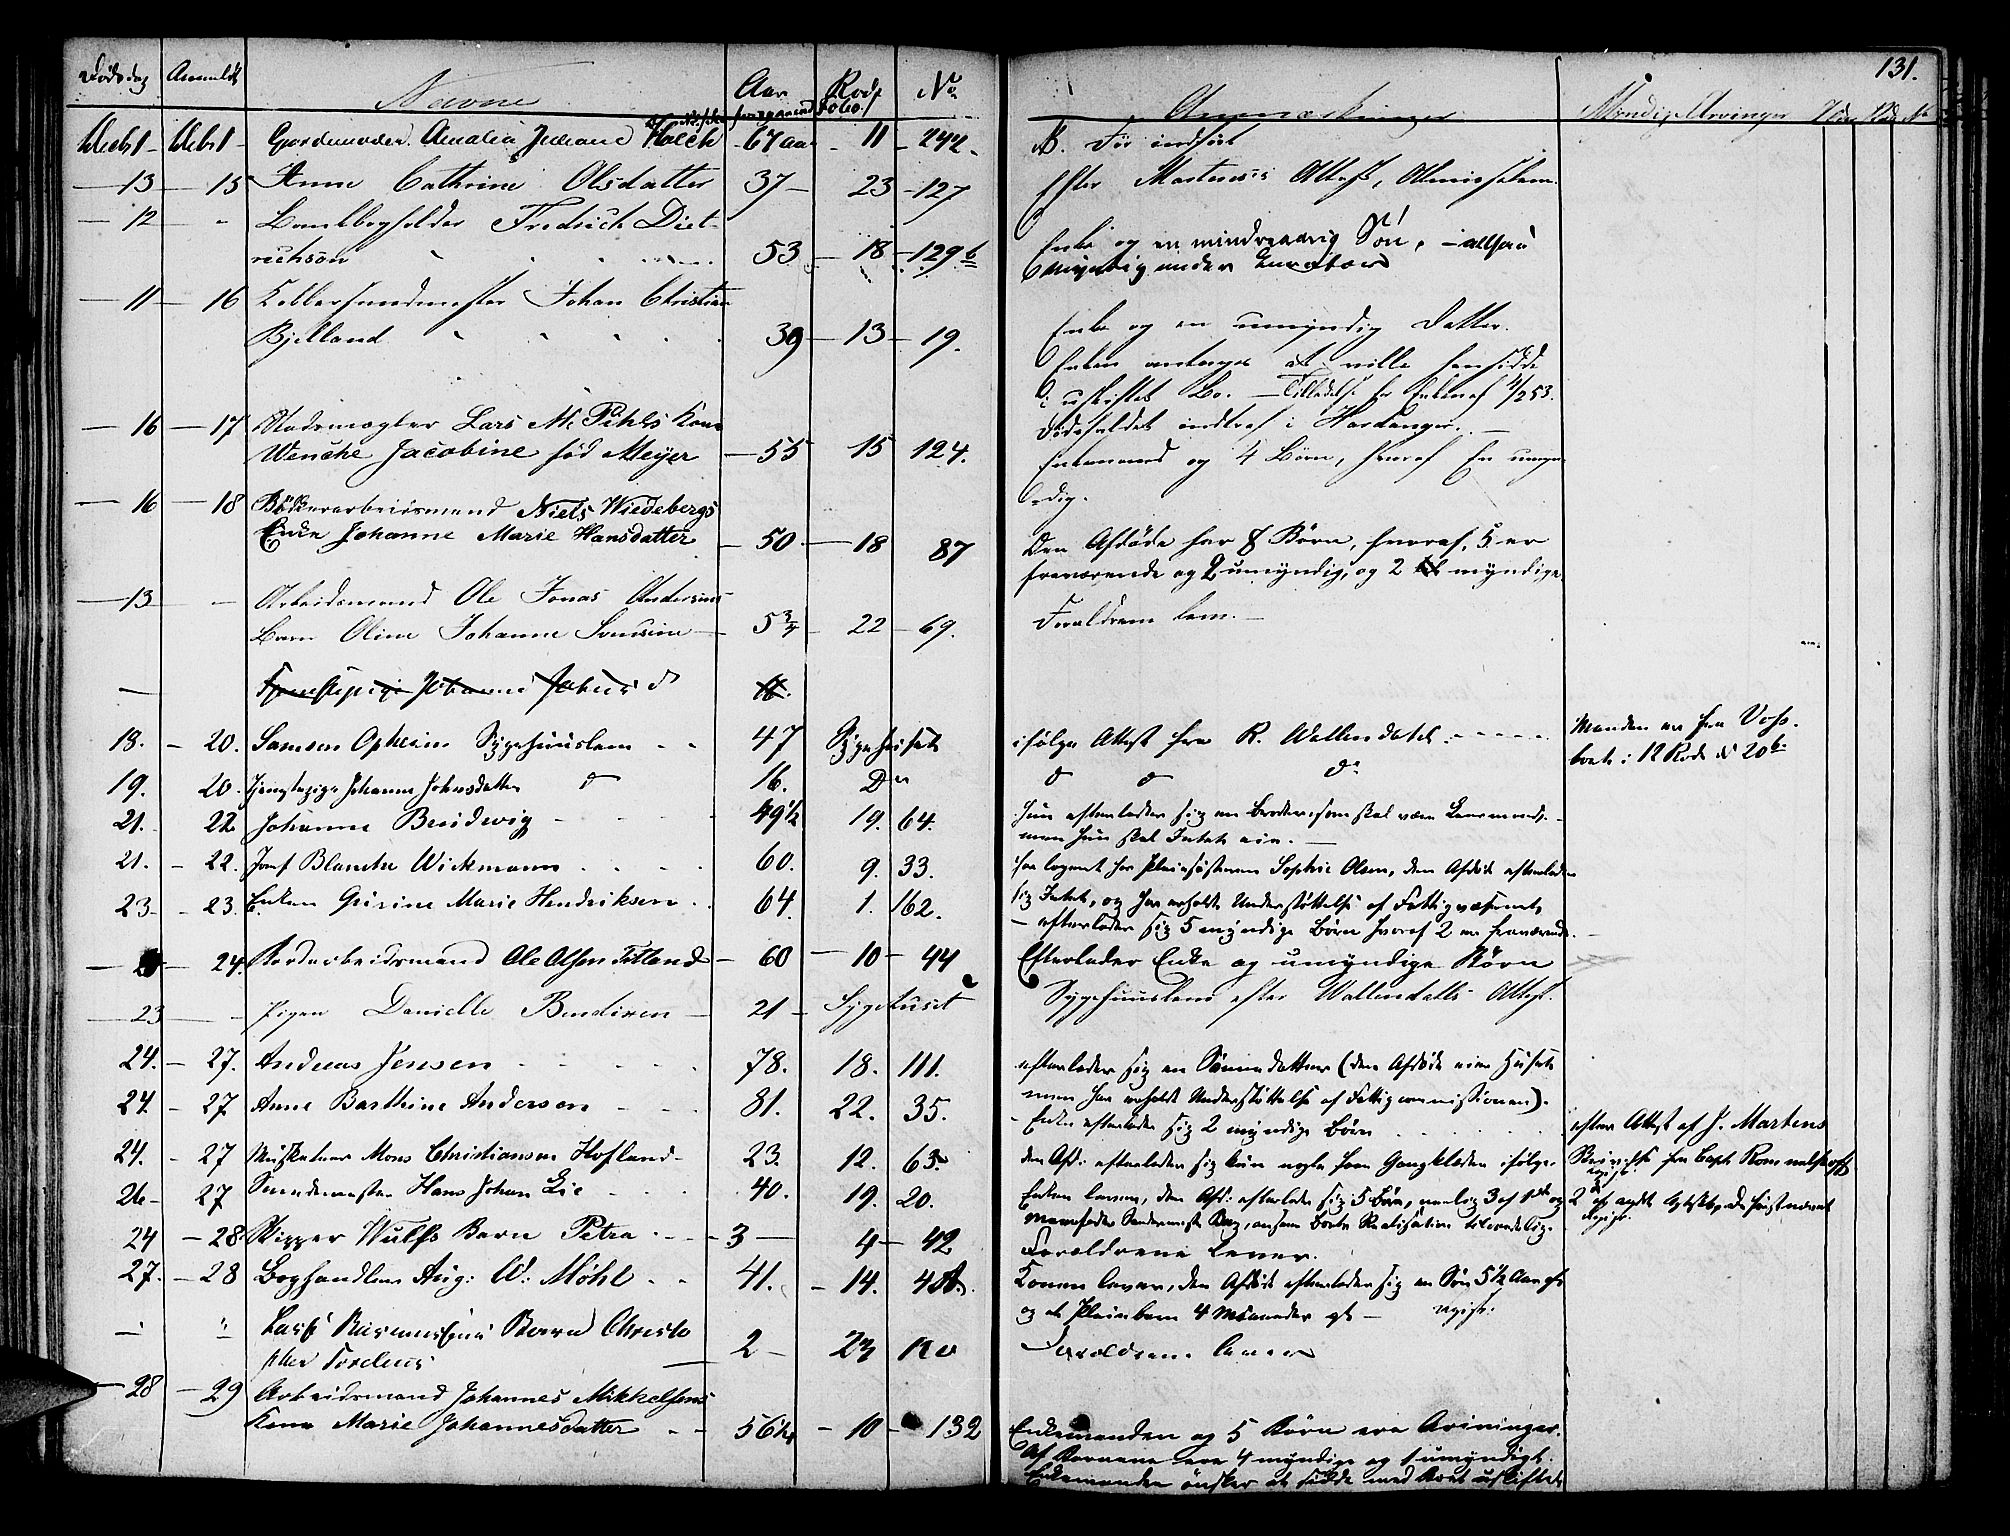 131.
Dødsdag Anmeldt Navne Aar Rode No Anmærkninger Myndige Arvinger
Decbr 1 - Decbr 1 - Gordemoder Amalia Juliane Holck - 67 aar - 11 - 242. NB. Før indført
13 - 15 Anne Cathrine Olsdatter 37 - 23 - 127 Efter Martens's Attest, Almisselem.
12 - " Bankbogholder Fredrich Diet-
richson 53 - 18 - 129 b Enke og en mindreaarig Søn, - altsaa
umyndig under Curator
11 - 16 Kobbersmedmester Johan Christian
Bjelland 39 - 13 - 19. Enke og en umyndig Datter.
Enken antages at ville hensidde
i uskiftet Bo. - Tilladelse for Enken af 4/2 53.
16 - 17 Lars M. Pihls Kone Dødsfaldet indtraf i Hardanger. -
Wenche Jacobine fød Meyer - 55 15 124. Enkemand og 4 Børn, hvoraf En umyn-
dig.
16 - 18 Bødkerarbeidsmand Niels Wiedebergs
Enke Johanne Marie Hansdatter - 50 - 18 87 Den Afdøde har 8 Børn, hvoraf 5 er
fraværende og 2 umyndig, og 2 myndige
13 - Arbeidsmand Ole Jonas Andersens
Barn Oline Johanne Severine 5 3/4 - 22 - 69. Forældrene leve. -
- Tjenestepige Johanne Johns d 16.
18. - 20. Samson Opheim Sygehuuslem - - 47 Sygehuset ifølge Attest fra R. Wallendahl. Manden er fra Voss.
boet i 12 Rode No 20 b.
19. 20. Tjenestepige Johanne Johnsdatter do 16. Do do do do
21. 22 Johanne Brudwig 49 1/2 19. 64. Hun efterlader sig en Broder, som skal være Lensmand, -
men hun skal Intet eie. -
21. - 22. Jomf Blanche Wickmann 60. 9. 33. har logeret hos Pleiesøsteren Sophie Olsen, den Afdøde efterlader
23 - 23. Enken Gurine Marie Hendriksen 64. 1. 162. sig Intet, og har erholdt Understøttelse af Fattigvæsenet,
- efterlader sig 5 myndige Børn hvoraf 2 er fraværende. -
- 24 Ole Olsen Titland - 60 - 10 - 44 Efterlader Enke og umyndige Børn
23 - Pigen Danielle Bendixen - 21 - Sygehuset Sygehuuslem efter Wallendahls Attest.
24. - 27. Andreas Jensen 78. 18. 111. efterlader sig en Sønnedatter (den Afdøde eier Huset
men har erholdt Understøttelse af Fattigcommissionen).
24. - 27 Anne Barthine Andersen 81. 22. 35. - Enke efterlader sig 2 myndige Børn efter Attest af J. Martens
24. - 27 Musketeer Mons Christiansen Hofland - 23. 12. 63. den Afd: efterlader sig kun nogle faa Gangklæder ifølge Beviis fra Capt.
26 - 27 Smedemester Hans Johan Lie 40. 19. 20. Enken lever, den Afd: efterlader sig 5 Børn, nemlig 3 af 1ste og 2 af andet Ægteskab,
24 - 28 Skipper Wulfs Barn Petra 3 - 4 - 42 Forældrene lever.
27. - 28 Boghandler Aug: W: Møhl 41. - 14. 48 Konen lever, den Afdøde efterlader sig en Søn 5 1/2 Aar gl:
og et Pleiebarn 4 Maaneder gl: - regist:
- " Lars Rasmussens Barn Christo
pher 2 - 23 Forældrene lever
28 - 29 Arbeidsmand Johannes Mikkelsens
Kone Marie Johannesdatter 56 1/4 - 10 - 132 Enkemanden og 5 Børn ere Arvinger.
Af Børnene ere 4 myndige og 1 umyndigt.
Enkemanden ønsker at sidde med Boet uskiftet